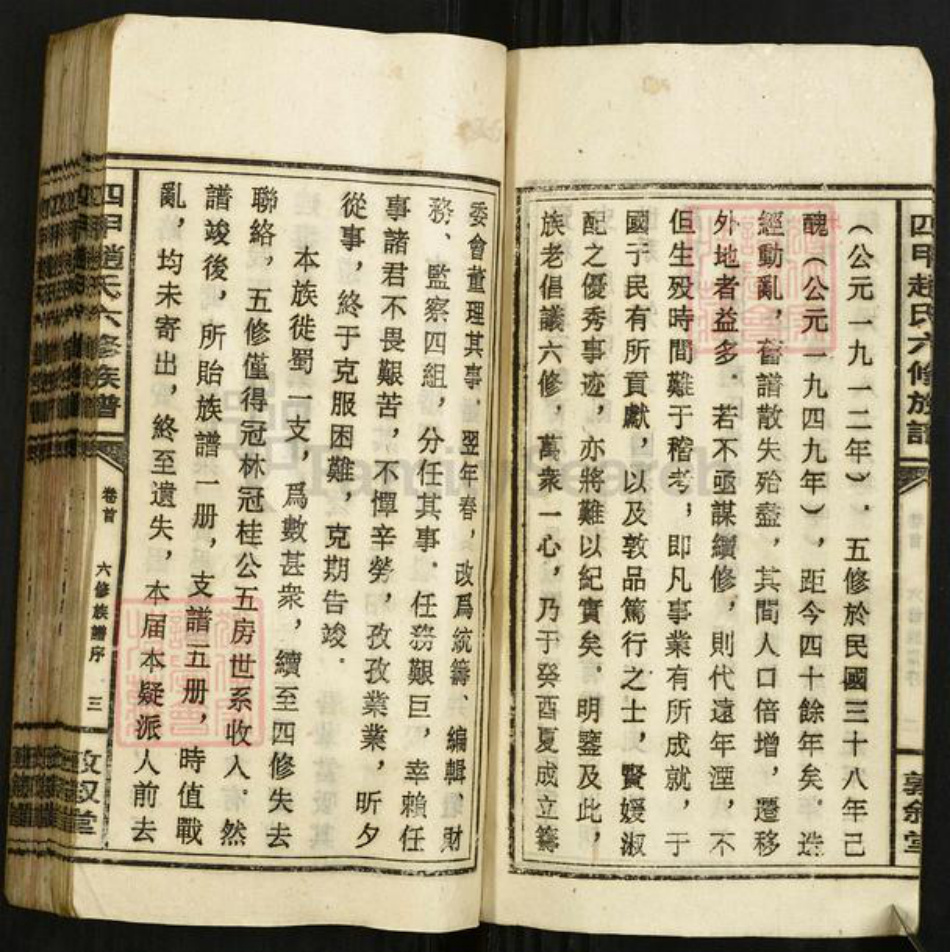 四甲趙氏六修族譜
敦敘堂
（公元一九一二年）．五修於民國三十八年己
醜（公元一九四九年），距今四十餘年矣．迭
經動亂，舊譜散失殆盡，其間人口倍增，遷移
外地者益多．若不亟謀續修，則代遠年湮，不
但生歿時間難于稽考，即凡事業有所成就，于
國于民有所貢獻，以及敦品篤行之士，賢媛淑
配之優秀事迹，亦將難以紀實矣．明鑒及此，
族老倡議六修，萬衆一心，乃于癸酉夏成立籌
委會董理其事．翌年春，改爲統籌、編輯、財
務、監察四組，分任其事．任務艱巨，幸賴任
事諸君不畏艱苦，不憚辛勞，孜孜業業，昕夕
從事，終于克服困難，克期告竣．
本族徙蜀一支，爲數甚衆，續至四修失去
聯絡，五修僅得冠林冠桂公五房世系收入．然
譜竣後，所貽族譜一册，支譜五册，時值戰
亂，均未寄出，終至遺失，本届本疑派人前去
四甲趙氏六修族譜
卷首
六修族譜序
三
Family Search